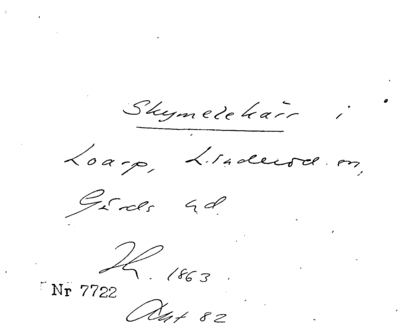 Skymelekärr i
Loarp, Linderöd sn,
Gärds hd.
1863.
Nr 7722
Akt 82